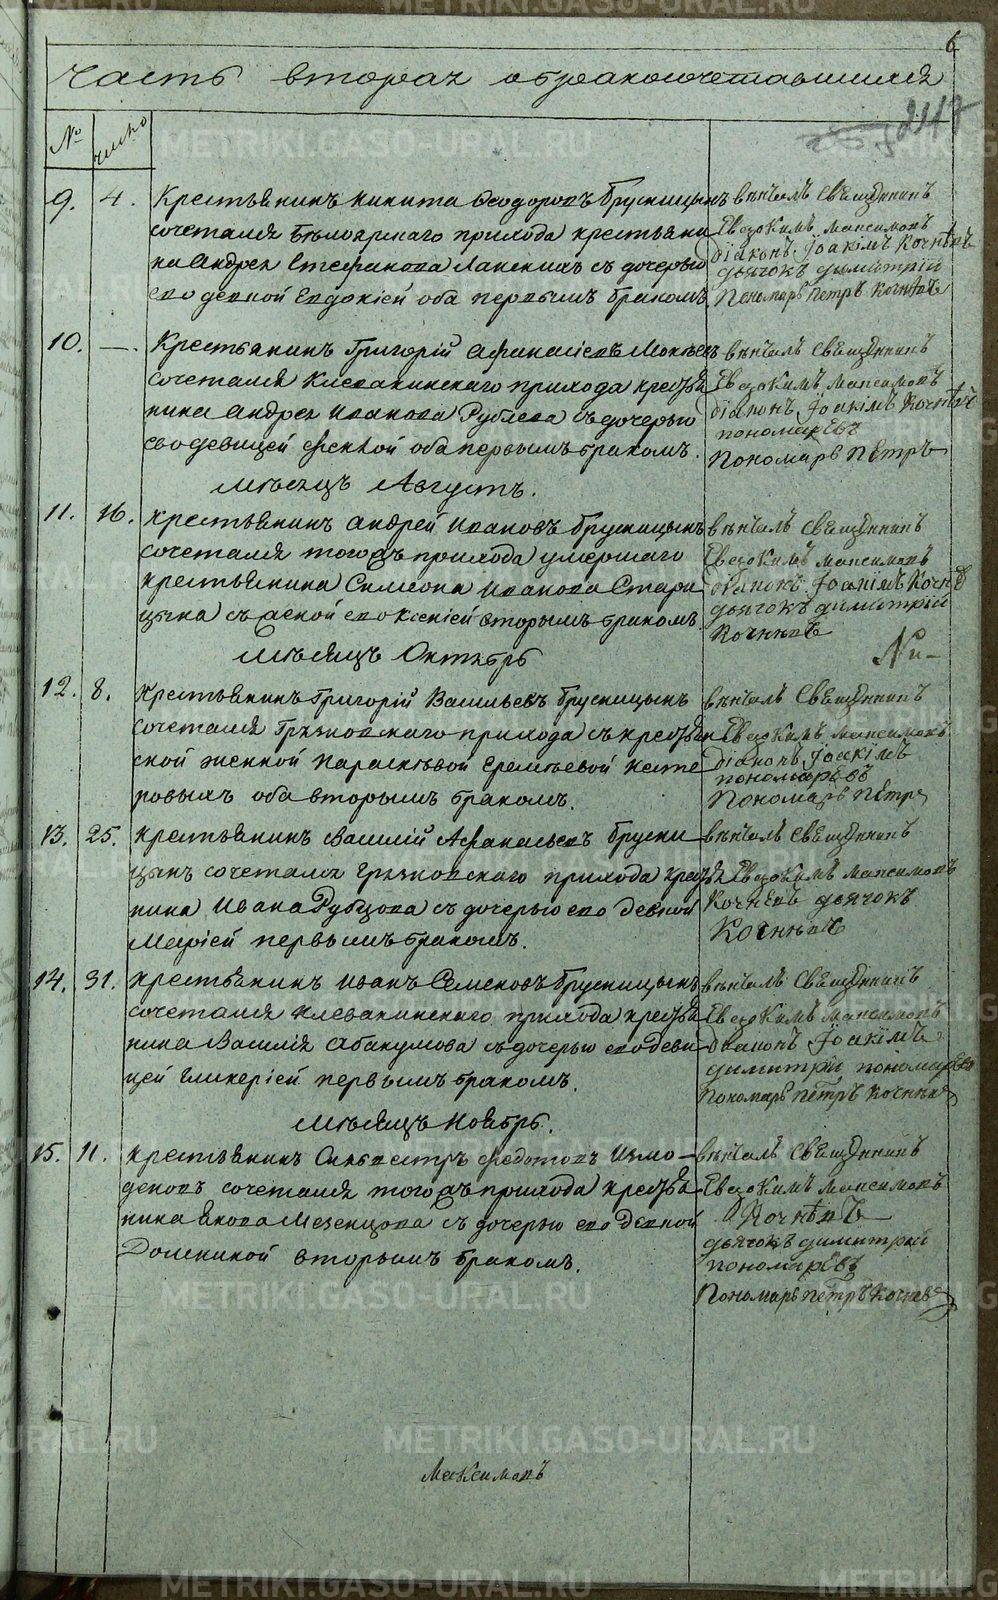 6
Часть вторая о бракосочетавшихся
2117
№ число
9. 4. Крестьянинъ Никита Ѳеодоровъ Брусницынъ
сочетался Бѣлоярскаго прихода крестьяни
на Андрея Стефанова съ дочерью
его девкой Евдокіей оба первымъ бракомъ.
вѣнчалъ Священникъ
Евдокимъ Максимовъ
діаконъ Іоакімъ Кочнѣвъ
дьячокъ димитрій
Пономарь Петръ Кочнѣвъ
10. —. Крестьянинъ Григорій Афанасіевъ Мокѣевъ
сочетался Клевакинскаго прихода крестья
нина Андрея Иванова Рублева съ дочерью
его девицей Феклой оба первымъ бракомъ.
вѣнчалъ Священникъ
Евдокимъ Максимовъ
діаконъ Іоакімъ Кочнѣвъ
пономарЕвъ
Пономарь Петръ
Мѣсяцъ Августъ.
11. 16. Крестьянинъ Андрей Ивановъ Брусницынъ
сочетался тогожъ прихода умершаго
крестьянина Симеона Иванова Стари
цына съ женой его Ксенией вторымъ бракомъ
вѣнчалъ Священникъ
Евдокимъ Максимовъ
діаконъ Іоакімъ Кочнѣв
дьячокъ димитрій
Кочнѣвъ
Мѣсяцъ Октябрь
12. 8. Крестьянинъ Григорій Васильевъ Брусницынъ
сочетался Грязновскаго прихода съ крестьян
ской женкой Параскѣвой Еремѣевой Несте
ровыхъ оба вторымъ бракомъ.
вѣнчалъ Священникъ
Евдокимъ Максимовъ
діаконъ Іоакімъ
пономарЕвъ
Пономарь Петръ
13. 25. Крестьянинъ Василій Афанасьевъ Брусни
цынъ сочетался Грязновскаго прихода крестья
нина Ивана Рубцова съ дочерью его девкой
Маріей первымъ бракомъ.
вѣнчалъ Священникъ
Евдокимъ Максимовъ
Кочнѣвъ дьячокъ
Кочнѣвъ
14. 31. Крестьянинъ Иванъ Семеновъ Брусницынъ
сочетался Клевакинскаго прихода крестья
нина Василія Абакумова съ дочерью его деви
цей Гликеріей первымъ бракомъ.
вѣнчалъ Священникъ
Евдокимъ Максимовъ
діаконъ Іоакімъ
димитрій пономарЕвъ
Пономарь Петръ Кочнѣвъ
Мѣсяцъ Ноябрь.
15. 11. Крестьянинъ Сильвестръ Федотовъ Измо-
деновъ сочетался тогожъ прихода крестья
нина Якова Мезенцова съ дочерью его девкой
Домникой вторымъ бракомъ.
вѣнчалъ Священникъ
Евдокимъ Максимовъ
Кочнѣвъ
дьячокъ димитрій
пономарЕвъ
Пономарь Петръ Кочневъ
Максимовъ
METRIKI.GASO-URAL.RU